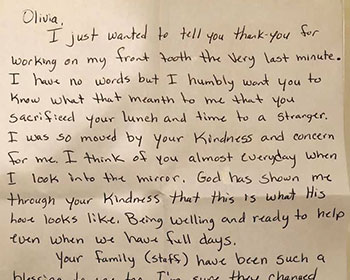 Olivia,
I just wanted to tell you thank-you for
working on my front tooth the very last minute.
I have no words but I humbly want you to
know what that meanth to me that you
sacrificed your lunch and time to a stranger.
I was so moved by your Kindness and concern
for me. I think of you almost everyday when
I look into the mirror. God has shown me
through your Kindness that this is what His
hove looks like. Being welling and ready to help
even when we have full days.
Your family (staffs) have been such a
blessing to you too. I'm sure they changed